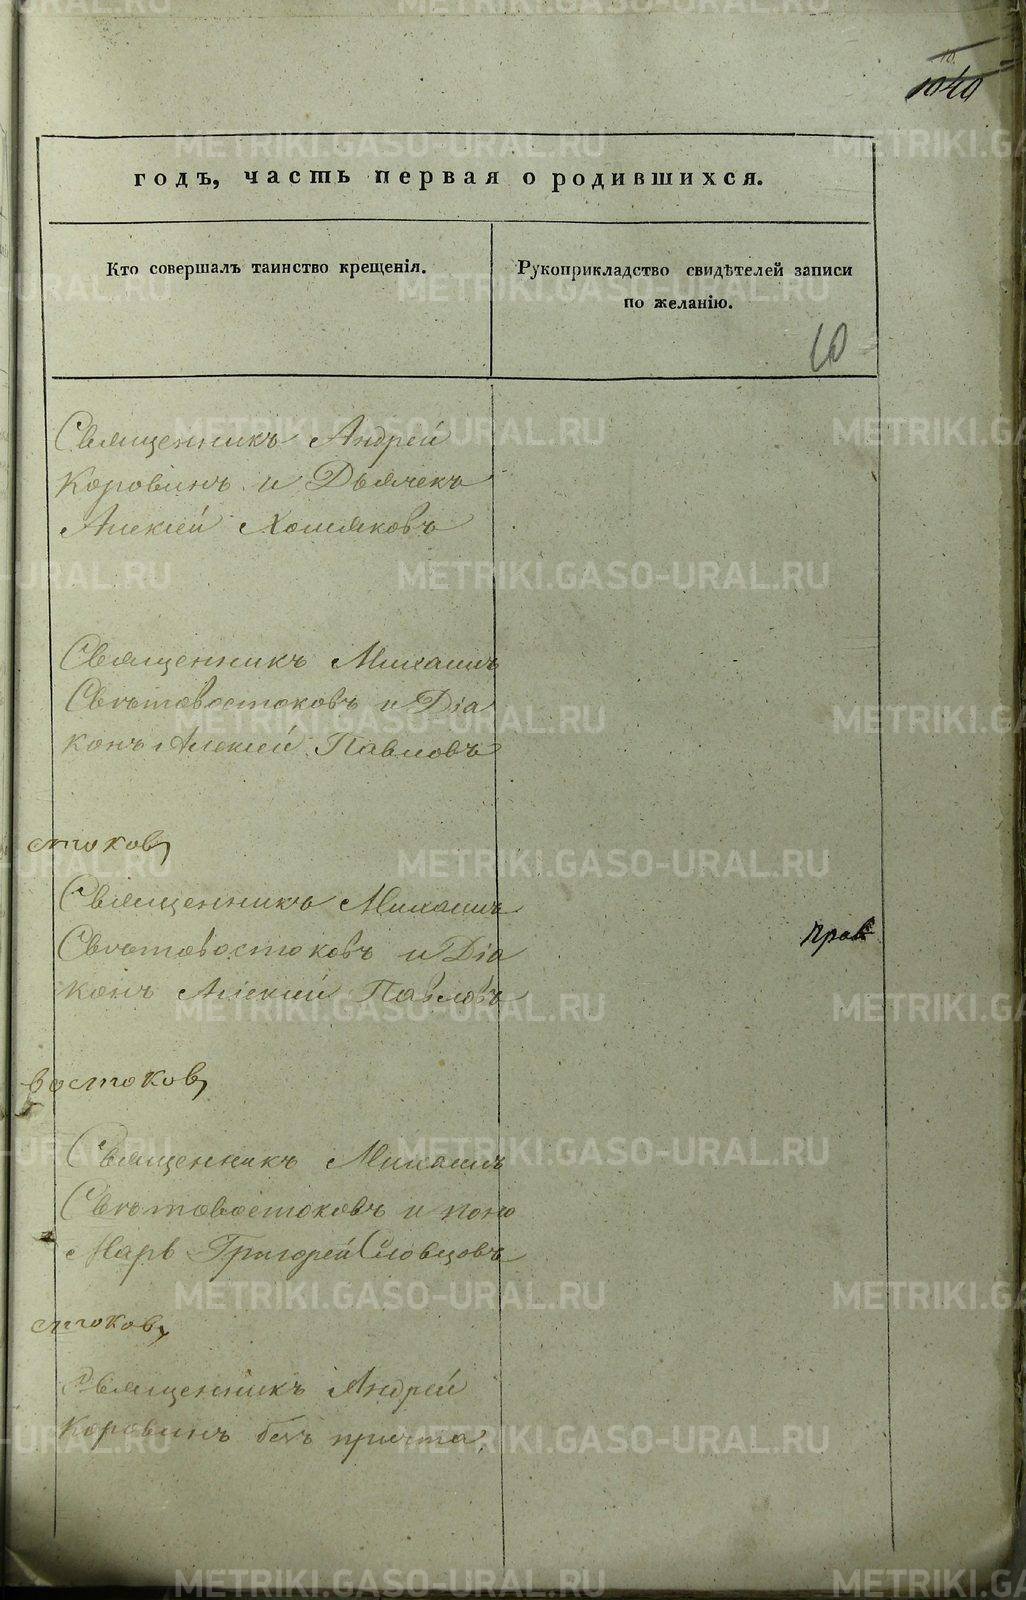 1040
годъ, часть первая о родившихся.
Кто совершалъ таинство крещенія.
Рукоприкладство свидѣтелей записи
по желанію.
10
Священникъ Андрей
Коровинъ и Дьячекъ
Алексей Хомяковъ
Священникъ Михаилъ
Световостоковъ и Діа
конъ Алексей Павловъ
стоковъ
Священникъ Михаилъ
Световостоковъ и Діа
конъ Алексий Павловъ
прав
востоковъ
Священникъ Михаилъ
Световостоковъ и поно
марь Григорей Словцовъ
стоковъ
Священникъ Андрей
Коровинъ безъ причта.
METRIKI.GASO-URAL.RU